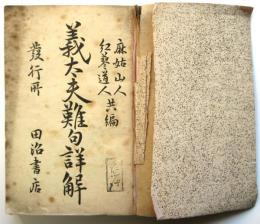 麻姑山人
紅蓼道人
共編
義太夫難句詳解
發行所 田沼書店